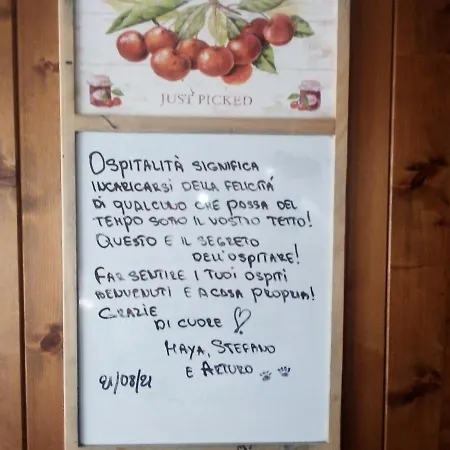 JUST PICKED
OSPITALITÀ SIGNIFICA
INCARICARSI DELLA FELICITÀ
DI QUALCUNO CHE POSSA DEL
TEMPO SOTTO IL VOSTRO TETTO!
QUESTO E IL SEGRETO
DELL'OSPITARE!
FAR SENTIRE I TUOI OSPITI
BENVENUTI E A CASA PROPRIA!
GRAZIE
DI CUORE
MAYA, STEFANO
21/08/21 E ARTURO